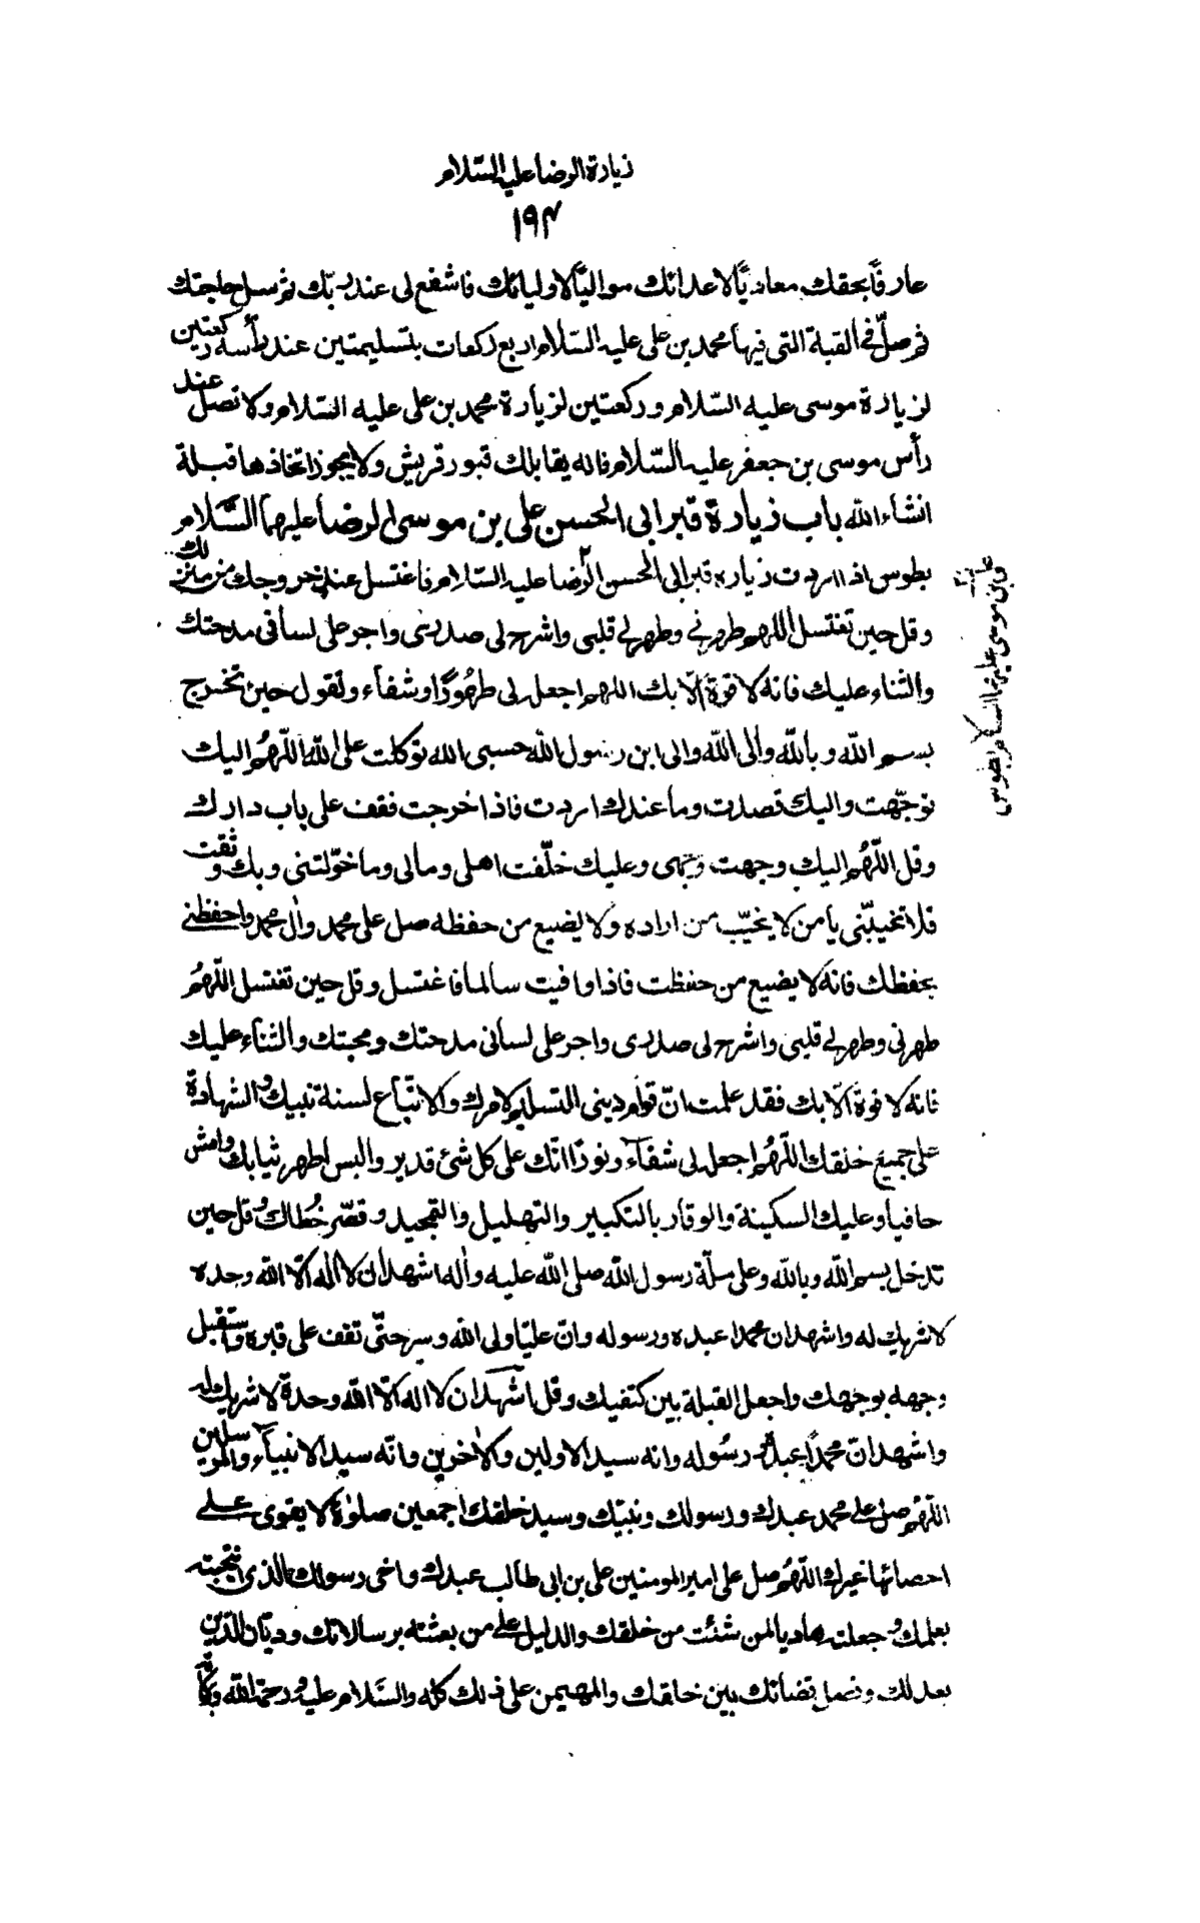 زيارة الرضا عليه السّلام
١٩٣
عارفًا بحقك معاديًا لاعدائك مواليًا لاوليائك فاشفع لى عند ربّك ثم سل حاجتك
ثم صلّ فى القبة التى فيها محمد بن على عليه السّلام اربع ركعات بتسليمتين عند رأسه ركعتين
لزيارة موسى عليه السّلام وركعتين لزيارة محمد بن على عليه السّلام ولا تصل عند
رأس موسى بن جعفر عليه السّلام فانه يقابلك قبور قريش ولا يجوز اتخاذها قبلة
انشاء الله باب زيارة قبر ابى الحسن على بن موسى الرضا عليهما السَّلام
بطوس اذا اردت زيارة قبر ابى الحسن الرّضا عليه السّلام فاغتسل عند خروجك من منزلك
وقل حين تغتسل اللهم طهرنى وطهر لى قلبى واشرح لى صدرى واجر على لسانى مدحتك
والثناء عليك فانه لا قوة الّا بك اللهم اجعله لى طهُورًا وشفاء وتقول حين تخرج
بسم الله وبالله والى الله والى ابن رسول الله حسبى الله توكلت على الله اللّهمُ اليك
توجّهت واليك قصدت وما عندك اردت فاذا خرجت فقف على باب دارك
وقل اللّهُم اليك وجهت وجهى وعليك خلّفت اهلى ومالى وما خوّلتنى وبك وثقت
فلا تخيبّنى يا من لا يخيّب من اراده ولا يضيع من حفظه صل على محمد وآل محمد واحفظنى
بحفظك فانه لا يضيع من حفظت فاذا وافيت سالما فاغتسل وقل حين تغتسل اللّهمُ
طهرنى وطهر لى قلبى واشرح لى صدرى واجر على لسانى مدحتك ومحبتك والثناء عليك
فانه لا قوة الّا بك فقد علمت انّ قوام دينى التسليم لامرك والاتّباع لسنة نبيك والشهادة
على جميع خلقك اللّهُم اجعله لى شفآء ونورًا انّك على كل شئ قدير والبس اطهر ثيابك وامش
حافيا وعليك السكينة والوقار بالتكبير والتهليل والتمجيد وقصّر خُطاك وقل حين
تدخل بسم الله وبالله وعلى ملّة رسول الله صلى الله عليه وآله اشهد ان لا اله الّا الله وحده
لا شريك له واشهد ان محمدا عبده ورسوله وانّ عليّا ولى الله وسر حتّى تقف على قبره وتستقبل
وجهه بوجهك واجعل القبلة بين كتفيك وقل اشهد ان لا اله الّا الله وحدهُ لا شريك له
واشهد انّ محمدًا عبدهُ ورسُوله وانه سيد الاولين والآخرين وانّه سيد الانبيآء والمرسلين
اللّهم صل على محمد عبدك ورسولك ونبيّك وسيد خلقك اجمعين صلوٰة لا يقوى على
احصائها غيرك اللّهُم صل على امير المومنين على بن ابى طالب عبدك واخى رسولك الذى انتجبته
بعلمك وجعلته هاديا لمن شئت من خلقك والدليل على من بعثته برسالاتك وديّان الدّين
بعدلك وفصل قضائك بين خلقك والمهيمن على ذلك كله والسَّلام عليه ورحمة الله وبركاته
على بن موسى عليهما السلام بطوس